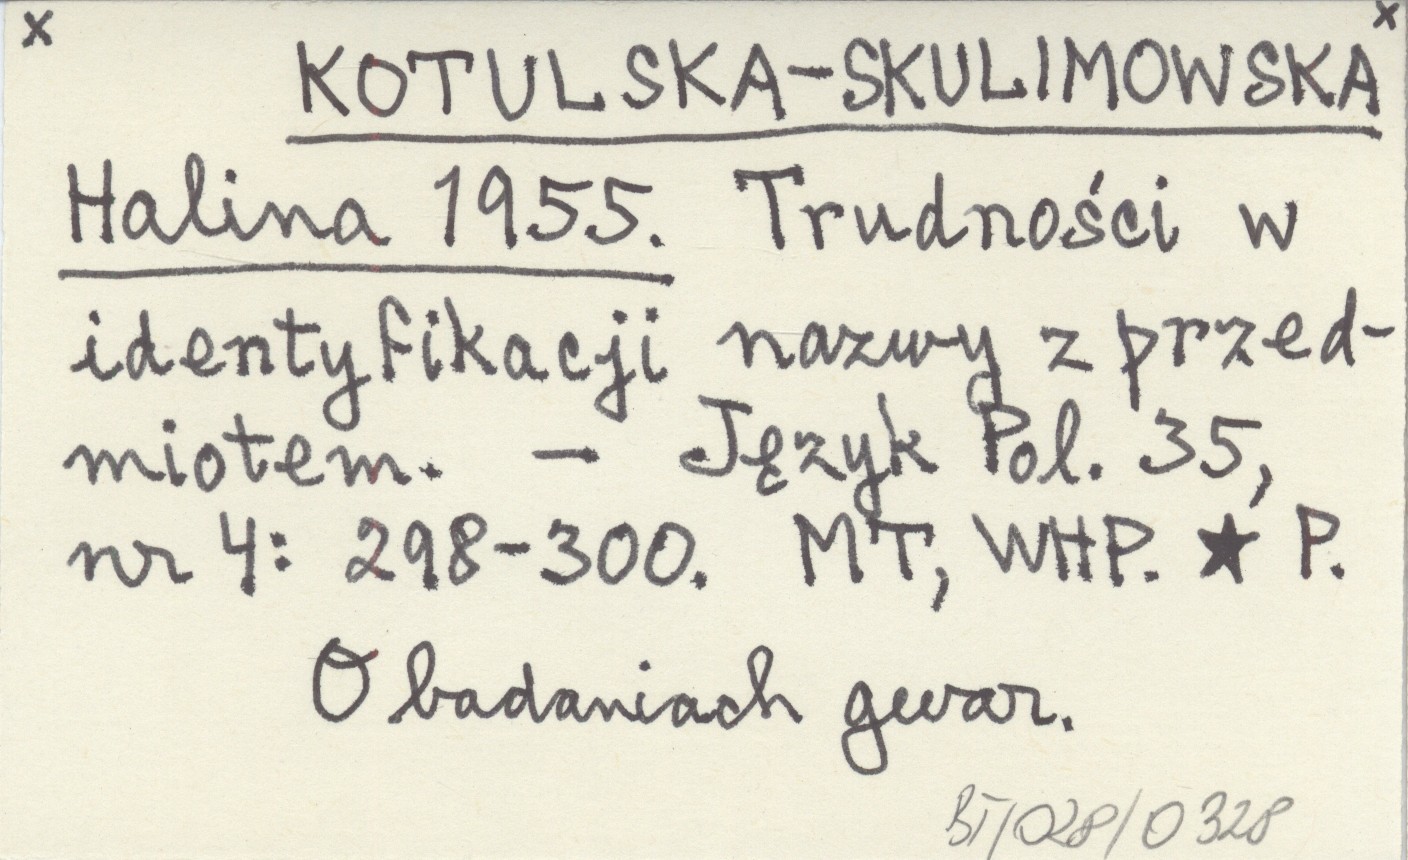 x x
KOTULSKA-SKULIMOWSKA
Halina 1955. Trudności w
identyfikacji nazwy z przed-
miotem. – Język Pol. 35,
nr 4: 298-300. MT, WHP. ★ P.
O badaniach gwar.
BT/028/0328